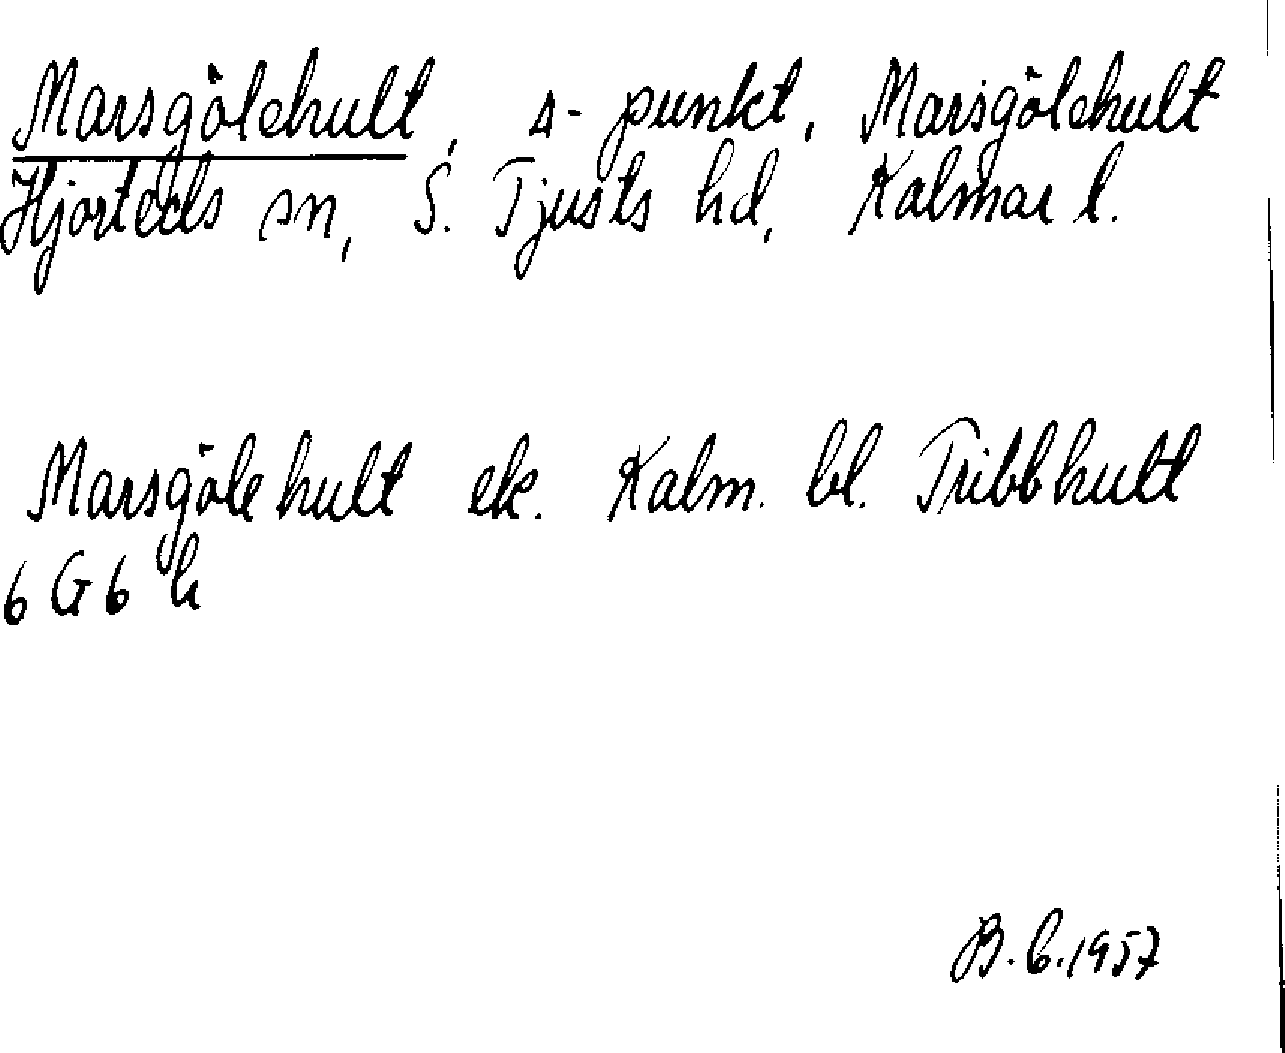 Marsgölehult, s-punkt, Marsgölehult
Hjorteds sn, S. Tjusts hd, Kalmar l.
Marsgölehult ek. Kalm. bl. Tribbhult
6 G 6 h
B.b.1957